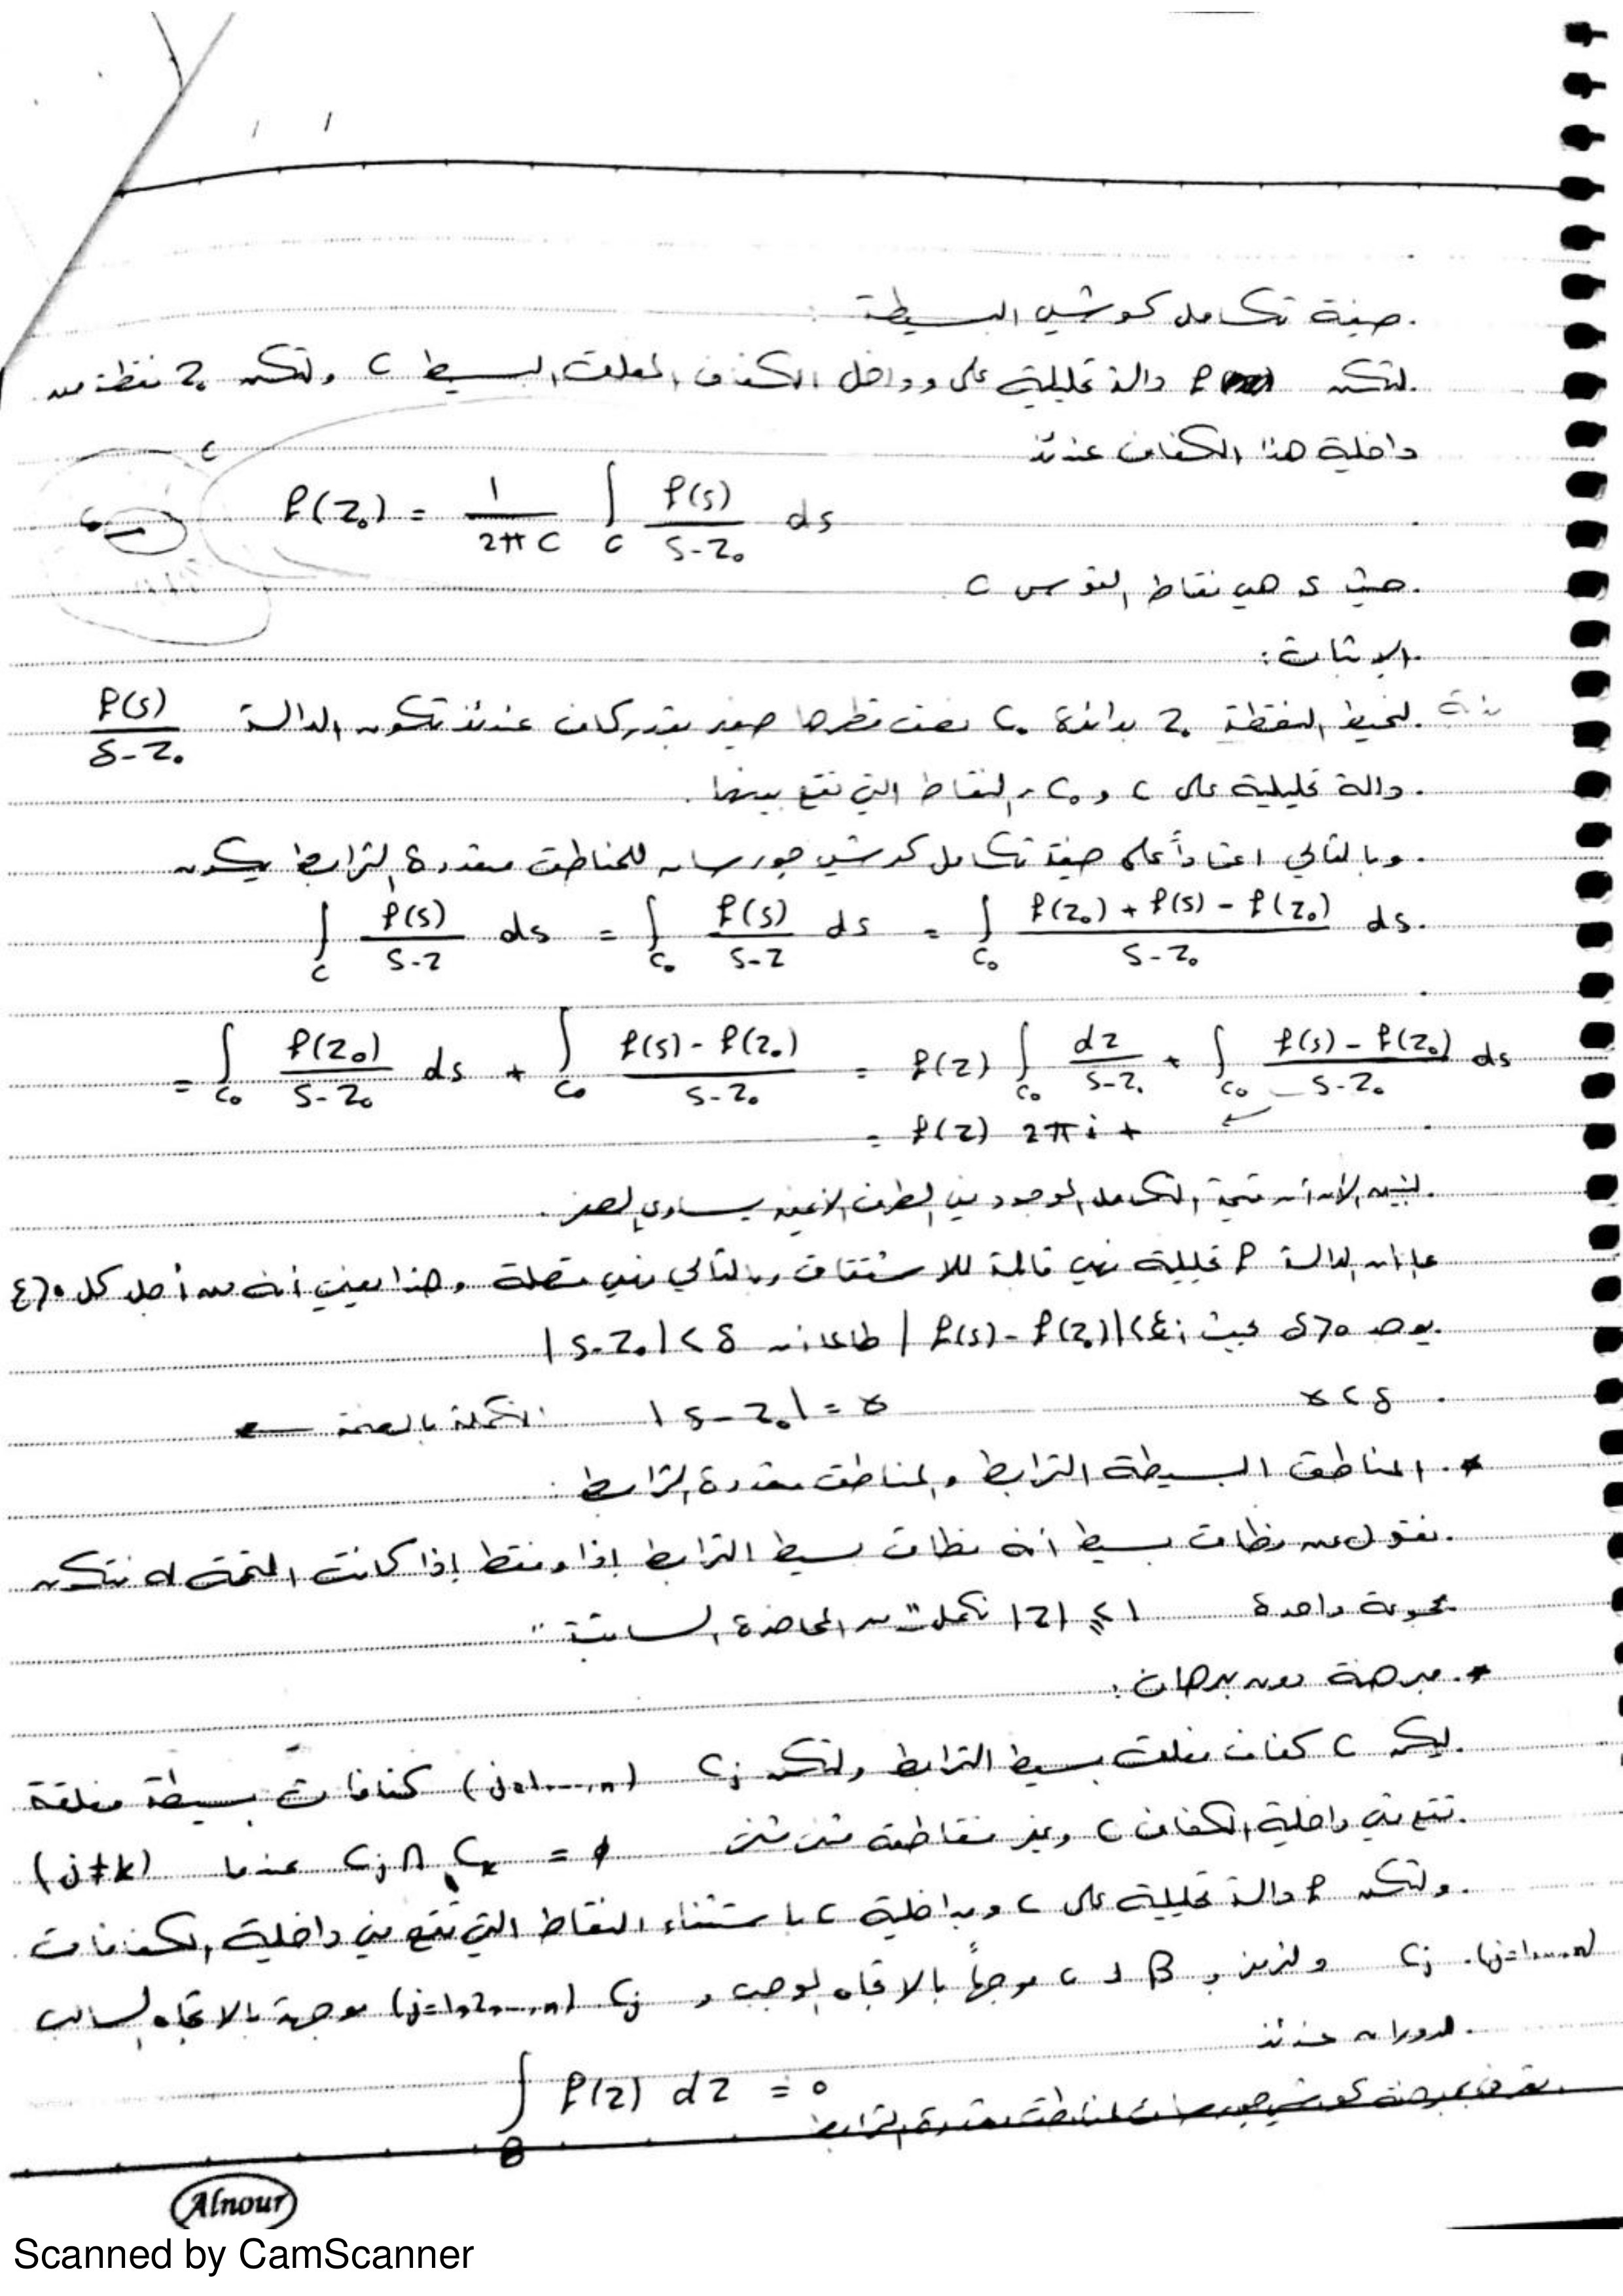 صيغة تكامل كوشي البسيطة :
لتكن f دالة تحليلية على وداخل الكفاف المغلق البسيط C ولتكن z₀ نقطة من
داخلية هذا الكفاف عندئذ
f(z₀) = 1/(2πc) ∫_C f(s)/(s-z₀) ds
حيث s هي نقاط القوس C
الإثبات :
لنحيط النقطة z₀ بدائرة C₀ نصف قطرها صغير بقدر كاف عندئذ تكون الدالة f(s)/(s-z₀)
دالة تحليلية على C و C₀ والنقاط التي تقع بينهما .
وبالتالي اعتماداً على صيغة تكامل كوشي جورسات للمناطق متعددة الترابط يكون
∫_C f(s)/(s-z) ds = ∫_C₀ f(s)/(s-z) ds = ∫_C₀ (f(z₀)+f(s)-f(z₀))/(s-z₀) ds
= ∫_C₀ f(z₀)/(s-z₀) ds + ∫_C₀ (f(s)-f(z₀))/(s-z₀) = f(z) ∫_C₀ dz/(s-z₀) + ∫_C₀ (f(s)-f(z₀))/(s-z₀) ds
= f(z) 2πi +
لنبين الآن أن قيمة التكامل الموجود في الطرف الأيمن يساوي الصفر .
بما أن الدالة f تحليلية فهي قابلة للاشتقاق وبالتالي فهي متصلة وهذا يعني أنه من أجل كل ε>0
يوجد δ>0 بحيث : |f(s)-f(z₀)|<ε طالما أن |s-z₀|<δ
γ<δ |s-z₀|=γ التكملة بالصفحة ←
* المناطق البسيطة الترابط والمناطق متعددة الترابط :
نقول عن نطاق بسيط أنه نطاق بسيط الترابط إذا وفقط إذا كانت المتممة له تتكون
مجموعة واحدة |z| ⩽ 1 تكملة من المحاضرة السابقة "
* مبرهنة دون برهان :
ليكن C كفاف مغلق بسيط الترابط ولتكن Cj (j=1,...,n) كفافات بسيطة مغلقة
تقع في داخلية الكفاف C وغير متقاطعة مثنى مثنى Cj ∩ Ck = ϕ عندما (j≠k)
ولتكن f دالة تحليلية على C وبداخلية C باستثناء النقاط التي تقع في داخلية الكفافات
Cj (j=1,...,n) ولنرمز بـ B لـ C موجهاً بالاتجاه الموجب و Cj (j=1,2,...,n) موجهة بالاتجاه السالب
للدوران عندئذ
∫_B f(z) dz = 0
تعرف بمبرهنة كوشي جورسات للمناطق متعددة الترابط
Alnour
Scanned by CamScanner